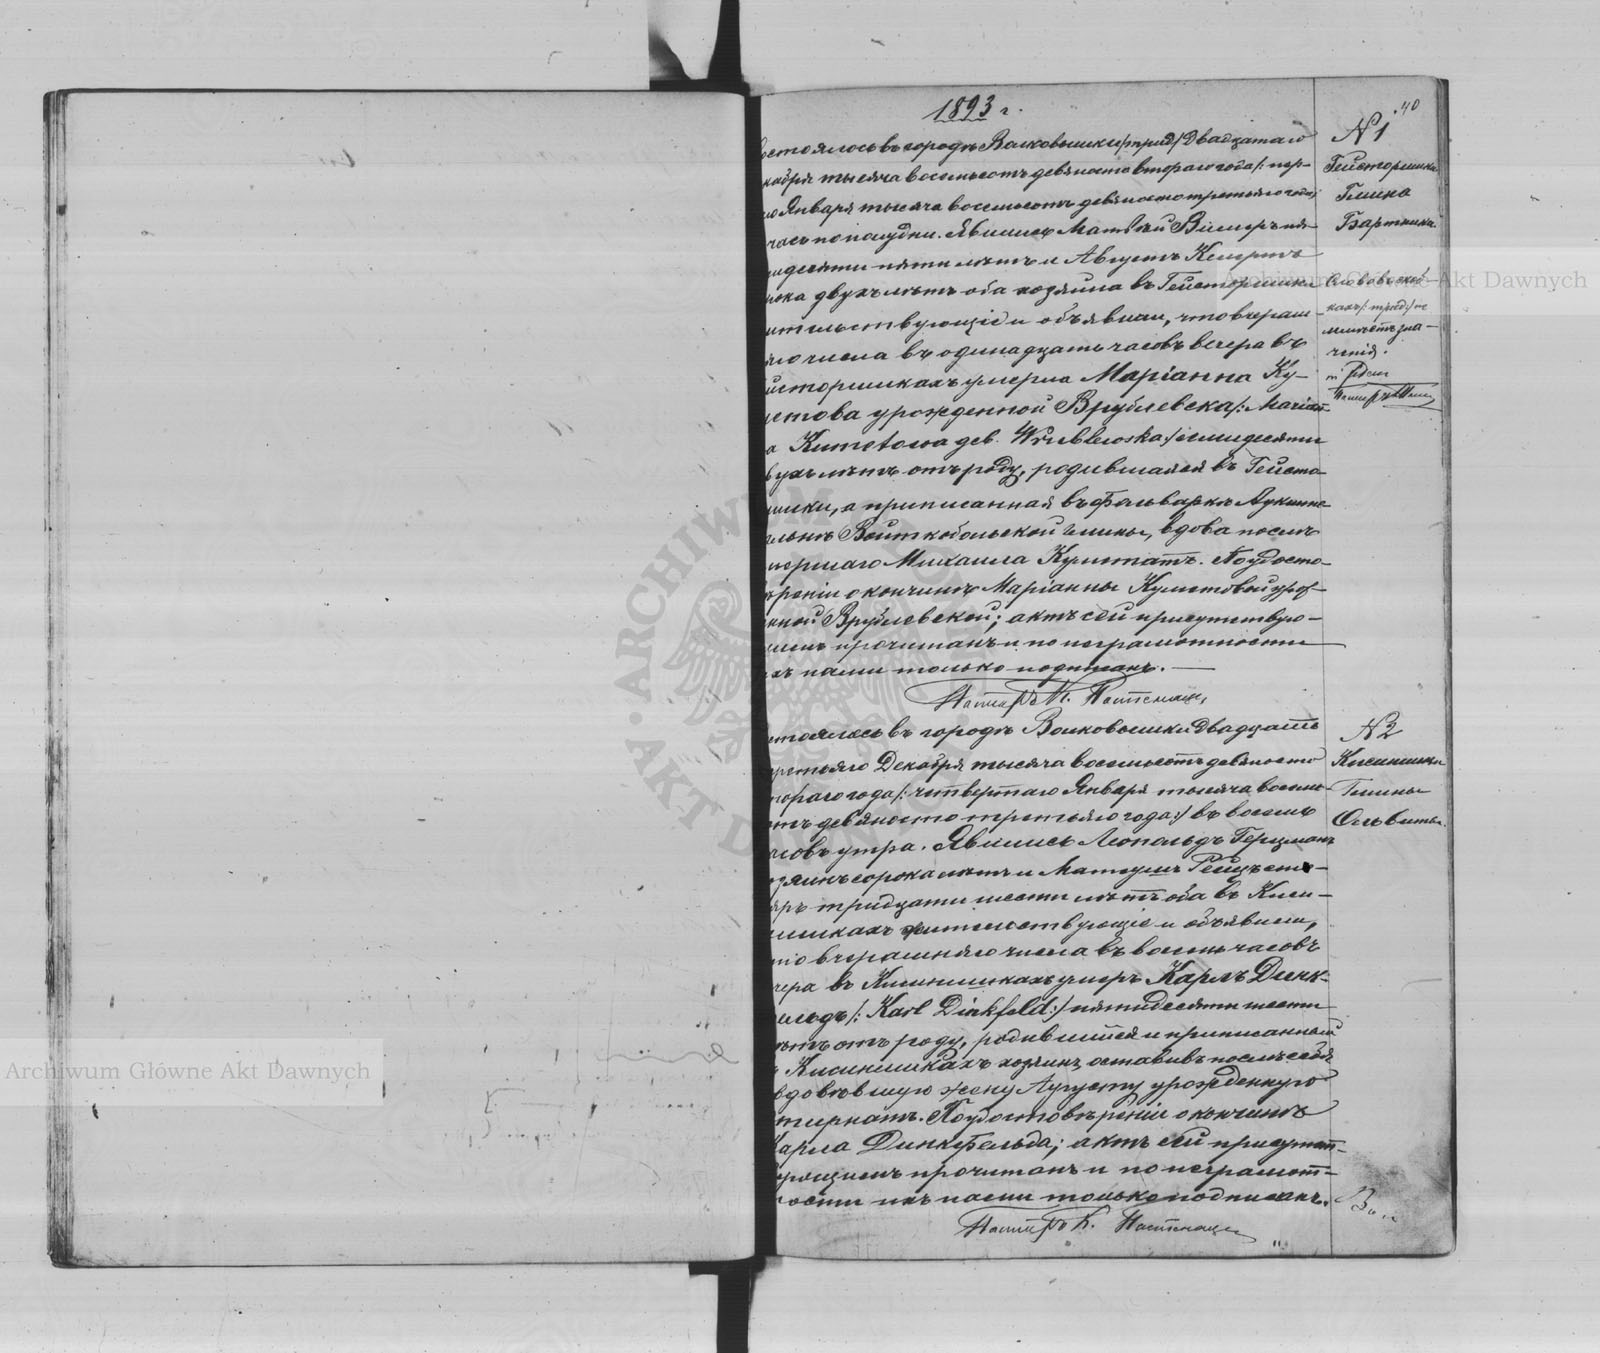 1893 г.
40
остоялось въ городѣ Волковышки /:трид:/ Двадцатаго
кабря тысяча восемьсотъ девяносто втораго года /: пер-
го Января тысяча восемьсотъ девяносто третьяго года:/
часъ по полудни. Явились Матвѣй Вилмеръ пя-
идесяти пяти лѣтъ и Августъ Кемертъ
рока двухъ лѣтъ оба хозяина въ Гейсторишки
ительствующіе и объявили, что вчераш-
яго числа въ одинадцать часовъ вечера въ
йсторишкахъ умерла Маріанна Ку-
етова урожденной Врублевска /: Marian-
a Kumetowa дев. Wrublewska :/ семидесяти
вухъ лѣтъ отъ роду, родившаяся въ Гейсто-
ишки, а приписанная въ фольваркѣ
Войткобольской Гмины, вдова послѣ
мершаго Михаила Куметатъ. По удосто-
ѣреніи о кончинѣ Маріанны Куметовой урож-
нной Врублевской; актъ сей присутствую-
имъ прочитанъ и по неграмотности
хъ нами только подписанъ.
Пасторъ К.
N 1
Гейсторишки
Гмина
Бартники
Слово въ скоб-
кахъ /:трид:/ не
имѣетъ зна-
ченія.
Пасторъ
тоялось въ городѣ Волковышки Двадцать
ретьяго Декабря тысяча восемьсотъ девяносто
тораго года /: четвертаго Января тысяча восемь-
отъ девяносто третьяго года:/ въ восемь
асовъ утра. Явились Леопольдъ Герцманъ
озяинъ сорока лѣтъ и Матеушъ Рейцъ сто-
яръ тридцати шести лѣтъ оба въ Киси-
ишкахъ жительствующіе и объявили,
то вчерашняго числа въ восемь часовъ
чера въ Кисинишкахъ умеръ Карлъ Динк-
ельдъ /: Karl Dinkfeld :/ пятидесяти шести
ѣтъ отъ роду, родившійся и приписанный
ъ Кисинишкахъ хозяинъ оставивъ послѣ себя
вдовѣвшую жену Августу урожденную
тернатъ. По удостовѣреніи о кончинѣ
Карла Динкфельда; актъ сей присутст-
ующимъ прочитанъ и по неграмот-
ности ихъ нами только подписанъ.
Пасторъ К.
N 2
Кисинишки
Гмины
Ольвита.
Archiwum Główne Akt Dawnych
Archiwum Główne Akt Dawnych
ARCHIWUM
AKT D